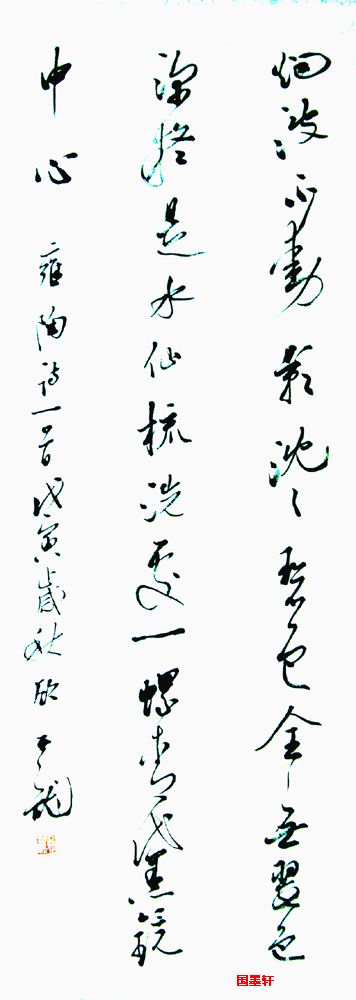 烟波不动影沈沈碧色全无翠色
深疑是水仙梳洗处一螺青黛镜
中心 雍陶诗一首戊寅岁秋
国墨轩